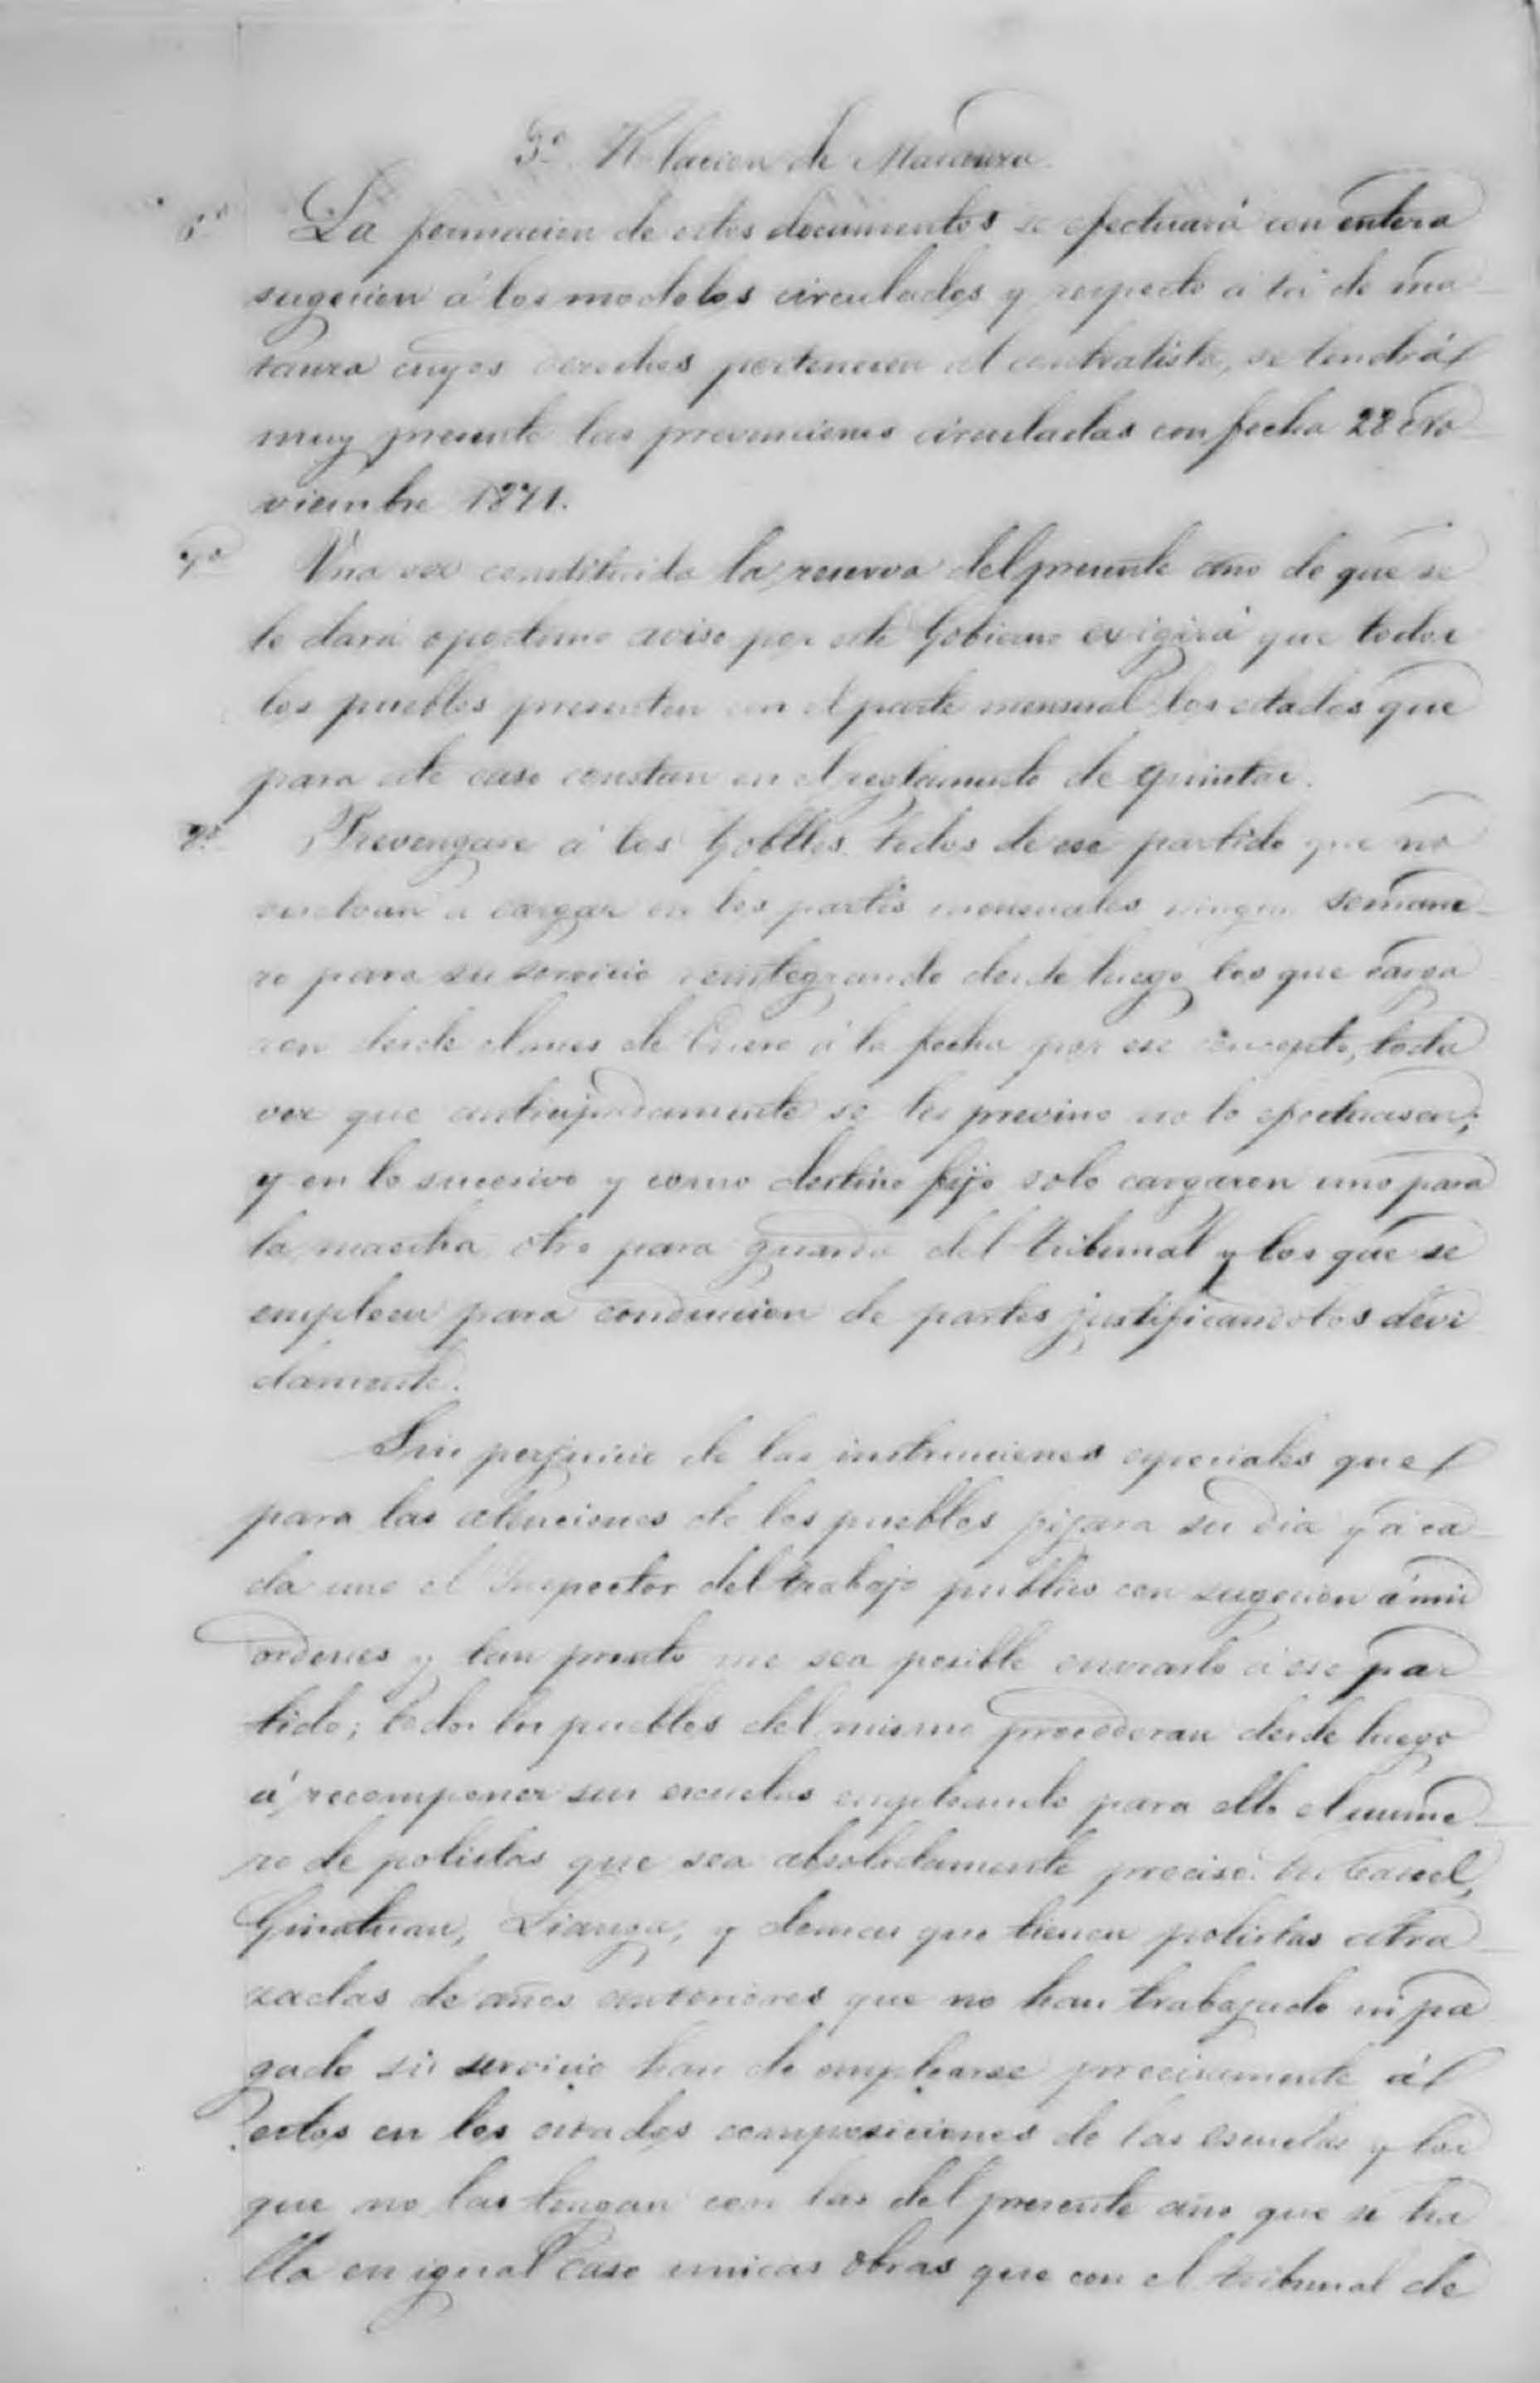 5º Relacion de Matanza.
6ª La formacion de estos documentos se efectuará con entera
sugecion á los modelos circulados y respecto á la de ma
tanza cuyos derechos pertenecen al contratista, se tendrá
muy presente las prevenciones circuladas con fecha 28 No
viembre 1871.
7ª Una vez constituida la reserva del presente año de que se
le dará oportuno aviso por este Gobierno exigirá que todos
los pueblos presenten con el parte mensual los estados que
para este caso constan en el reglamento de quintas.
8ª Prevengase á los Gobllos todos de ese partido que no
vuelvan a cargar en los partes mensuales ningun semane
ro para su servicio reintegrando desde luego los que carga
ron desde el mes de Enero á la fecha por ese concepto, toda
vez que anticipadamente se les previno no lo efectuasen;
y en lo sucesivo y como destino fijo solo cargaren uno para
la marcha otro para guarda del tribunal y los que se
empleen para conducion de partes justificandolos devi
damente.
Sin perjuicio de las instrucciones especiales que
para las atenciones de los pueblos fijara su dia y á ca
da uno el Inspector del trabajo publico con sugecion á mis
ordenes y tan pronto me sea posible enviarlo á ese par
tido; todos los pueblos del mismo procederan desde luego
á recomponer sus escuelas empleando para ello el nume
ro de polistas que sea absolutamente preciso. En Cantel,
Ginatuan, Lianga, y demas que tienen polistas atra
zadas de años anteriores que no han trabajado ni pa
gado su servicio han de emplearse precisamente á
estos en las citadas composiciones de las escuelas y los
que no las tengan con las del presente año que se ha
lla en igual caso unicas obras que con el tribunal de